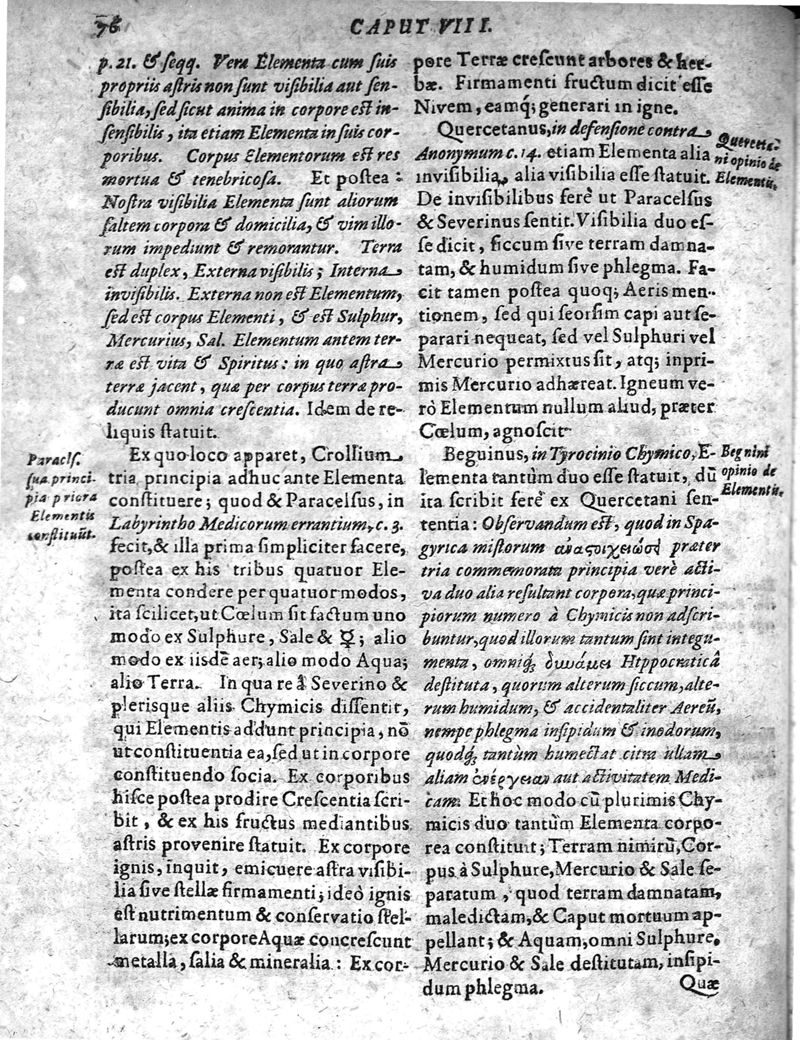 76
CAPUT VIII.
p. 21. & seqq. Vera Elementa cum suis
propriis astris non sunt visibilia aut sen-
sibilia, sed sicut anima in corpore est in-
sensibilis, ita etiam Elementa in suis cor-
poribus. Corpus Elementorum est res
mortua & tenebricosa. Et postea:
Nostra visibilia Elementa sunt aliorum
saltem corpora & domicilia, & vim illo-
rum impediunt & remorantur. Terra
est duplex, Externa visibilis; Interna
invisibilis. Externa non est Elementum,
sed est corpus Elementi, & est Sulphur,
Mercurius, Sal. Elementum autem ter-
ræ est vita & Spiritus: in quo astra
terræ jacent, quæ per corpus terræ pro-
ducunt omnia crescentia. Idem de re-
liquis statuit.
Paracls.
sua princi-
pia priora
Elementis
constituũt.
Ex quo loco apparet, Crollium
tria principia adhuc ante Elementa
constituere; quod & Paracelsus, in
Labyrintho Medicorum errantium, c. 3.
fecit, & illa prima simpliciter facere,
postea ex his tribus quatuor Ele-
menta condere per quatuor modos,
ita scilicet, ut Cœlum sit factum uno
modo ex Sulphure, Sale & ☿; alio
modo ex iisdẽ aer; alio modo Aqua;
alio Terra. In qua re à Severino &
plerisque aliis Chymicis dissentit,
qui Elementis addunt principia, nõ
ut constituentia ea, sed ut in corpore
constituendo socia. Ex corporibus
hisce postea prodire Crescentia scri-
bit, & ex his fructus mediantibus
astris provenire statuit. Ex corpore
ignis, inquit, emicuere astra visibi-
lia sive stellæ firmamenti; ideò ignis
est nutrimentum & conservatio stel-
larum; ex corpore Aquæ concrescunt
metalla, salia & mineralia: Ex cor-
pore Terræ crescunt arbores & her-
bæ. Firmamenti fructum dicit esse
Nivem, eamq; generari in igne.
Quercetanus, in defensione contra
Anonymum c. 14. etiam Elementa alia
invisibilia, alia visibilia esse statuit.
De invisibilibus ferè ut Paracelsus
& Severinus sentit. Visibilia duo es-
se dicit, siccum sive terram damna-
tam, & humidum sive phlegma. Fa-
cit tamen postea quoq; Aeris men-
tionem, sed qui seorsim capi aut se-
parari nequeat, sed vel Sulphuri vel
Mercurio permixtus sit, atq; inpri-
mis Mercurio adhæreat. Igneum ve-
rò Elementum nullum aliud, præter
Cœlum, agnoscit.
Querceta-
ni opinio de
Elementis.
Beguinus, in Tyrocinio Chymico, E-
lementa tantùm duo esse statuit, dũ
ita scribit ferè ex Quercetani sen-
tentia: Observandum est, quod in Spa-
gyrica mistorum ἀναστοιχειώσῃ præter
tria commemorata principia verè acti-
va duo alia resultant corpora, quæ princi-
piorum numero à Chymicis non adscri-
buntur, quod illorum tantum sint integu-
menta, omniq; δυνάμει Hippocraticâ
destituta, quorum alterum siccum, alte-
rum humidum, & accidentaliter Aereũ,
nempe phlegma insipidum & inodorum,
quodq; tantùm humectat citra ullam
aliam ἐνέργειαν aut activitatem Medi-
cam. Et hoc modo cũ plurimis Chy-
micis duo tantùm Elementa corpo-
rea constituit; Terram nimirũ, Cor-
pus à Sulphure, Mercurio & Sale se-
paratum, quod terram damnatam,
maledictam, & Caput mortuum ap-
pellant; & Aquam, omni Sulphure,
Mercurio & Sale destitutam, insipi-
dum phlegma.
Beguini
opinio de
Elementis.
Quæ